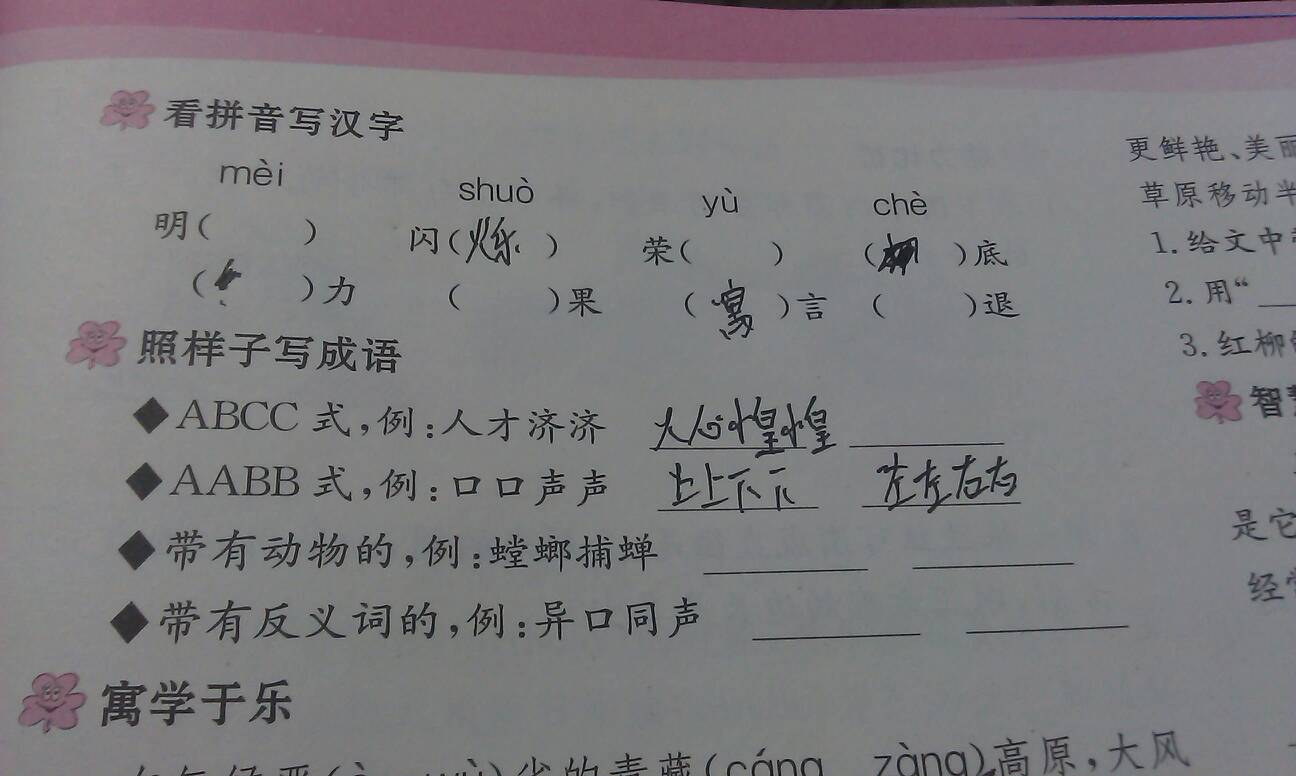 看拼音写汉字
mèi shuò yù chè
明( ) 闪(烁) 荣( ) ( )底
( )力 ( )果 (寓)言 ( )退
照样子写成语
◆ABCC式,例:人才济济 人心惶惶
◆AABB式,例:口口声声 上上下下 左左右右
◆带有动物的,例:螳螂捕蝉
◆带有反义词的,例:异口同声
寓学于乐
省的青藏(cáng zàng)高原,大风
更鲜艳、美丽
草原移动半
1.给文中
2.用“
3.红柳
智慧
是它
经常